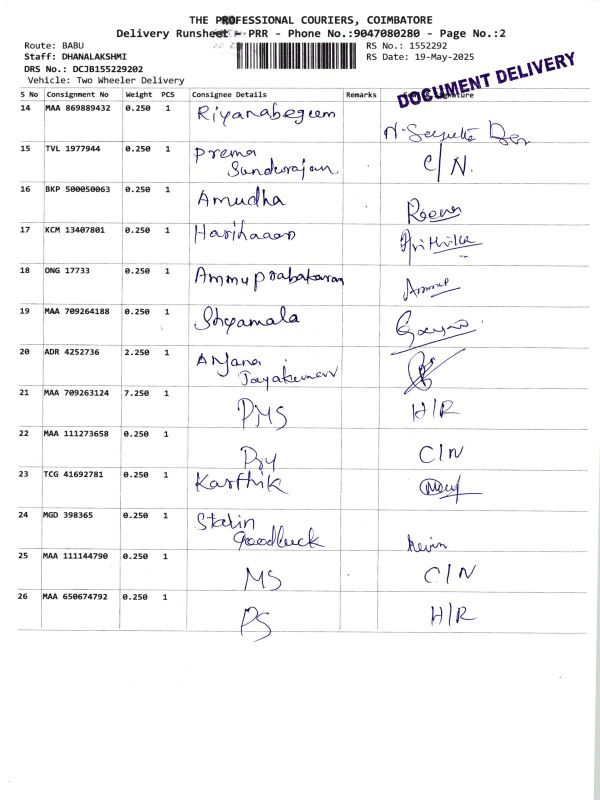 THE PROFESSIONAL COURIERS, COIMBATORE
Delivery Runsheet - PRR - Phone No.:9047080280 - Page No.:2
Route: BABU
Staff: DHANALAKSHMI
DRS No.: DCJB155229202
Vehicle: Two Wheeler Delivery
RS No.: 1552292
RS Date: 19-May-2025
DOCUMENT DELIVERY
S No Consignment No Weight PCS Consignee Details Remarks
14 MAA 869889432 0.250 1 Riyanabegum
15 TVL 1977944 0.250 1 Prema Sundurajan C/N.
16 BKP 500050063 0.250 1 Amudha
17 KCM 13407801 0.250 1 Hariharan Arithika
18 ONG 17733 0.250 1 Ammuprabakaran
19 MAA 709264188 0.250 1 Shyamala
20 ADR 4252736 2.250 1 Anjana Jayakumar
21 MAA 709263124 7.250 1 PMS H/R
22 MAA 111273658 0.250 1 C/N
23 TCG 41692781 0.250 1 Karthik
24 MGD 398365 0.250 1 Stalin Goodluck Kevin
25 MAA 111144790 0.250 1 MS C/N
26 MAA 650674792 0.250 1 PS H/R